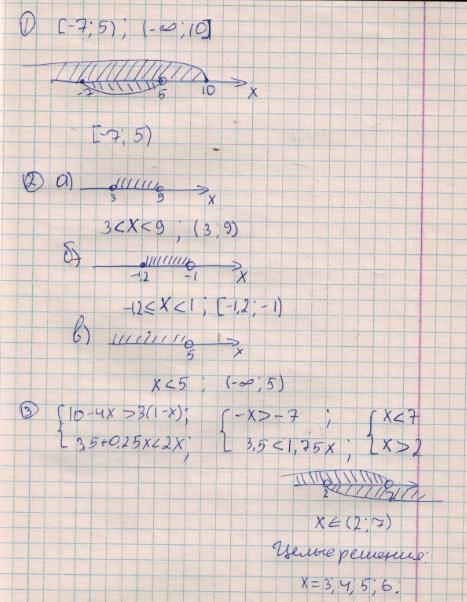 ① [-7; 5) ; (-∞; 10]
-7 5 10 x
[-7; 5)
② а)
3 9 x
3<x<9 ; (3; 9)
б)
-1,2 -1 x
-1,2≤x<1 ; [-1,2; -1)
в)
5 x
x<5 ; (-∞; 5)
③ { 10-4x>3(1-x); { -x>-7 ; { x<7
3,5+0,25x<2x; 3,5<1,75x ; x>2
2 7
x∈(2; 7)
Целые решения:
x=3; 4; 5; 6.